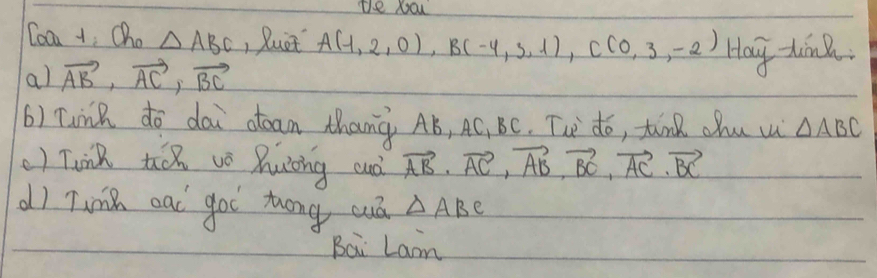 Đề bài
Câu 1: Cho △ ABC, biết A(1, 2, 0), B(-4, 5, 1), C(0, 3, -2) Hãy tính:
a) AB, AC, BC
b) Tính độ dài đoạn thẳng AB, AC, BC. Từ đó, tính chu vi △ABC
c) Tính tích vô hướng của AB. AC, AB. BC, AC. BC
d) Tính các góc trong của △ ABC
Bài Làm